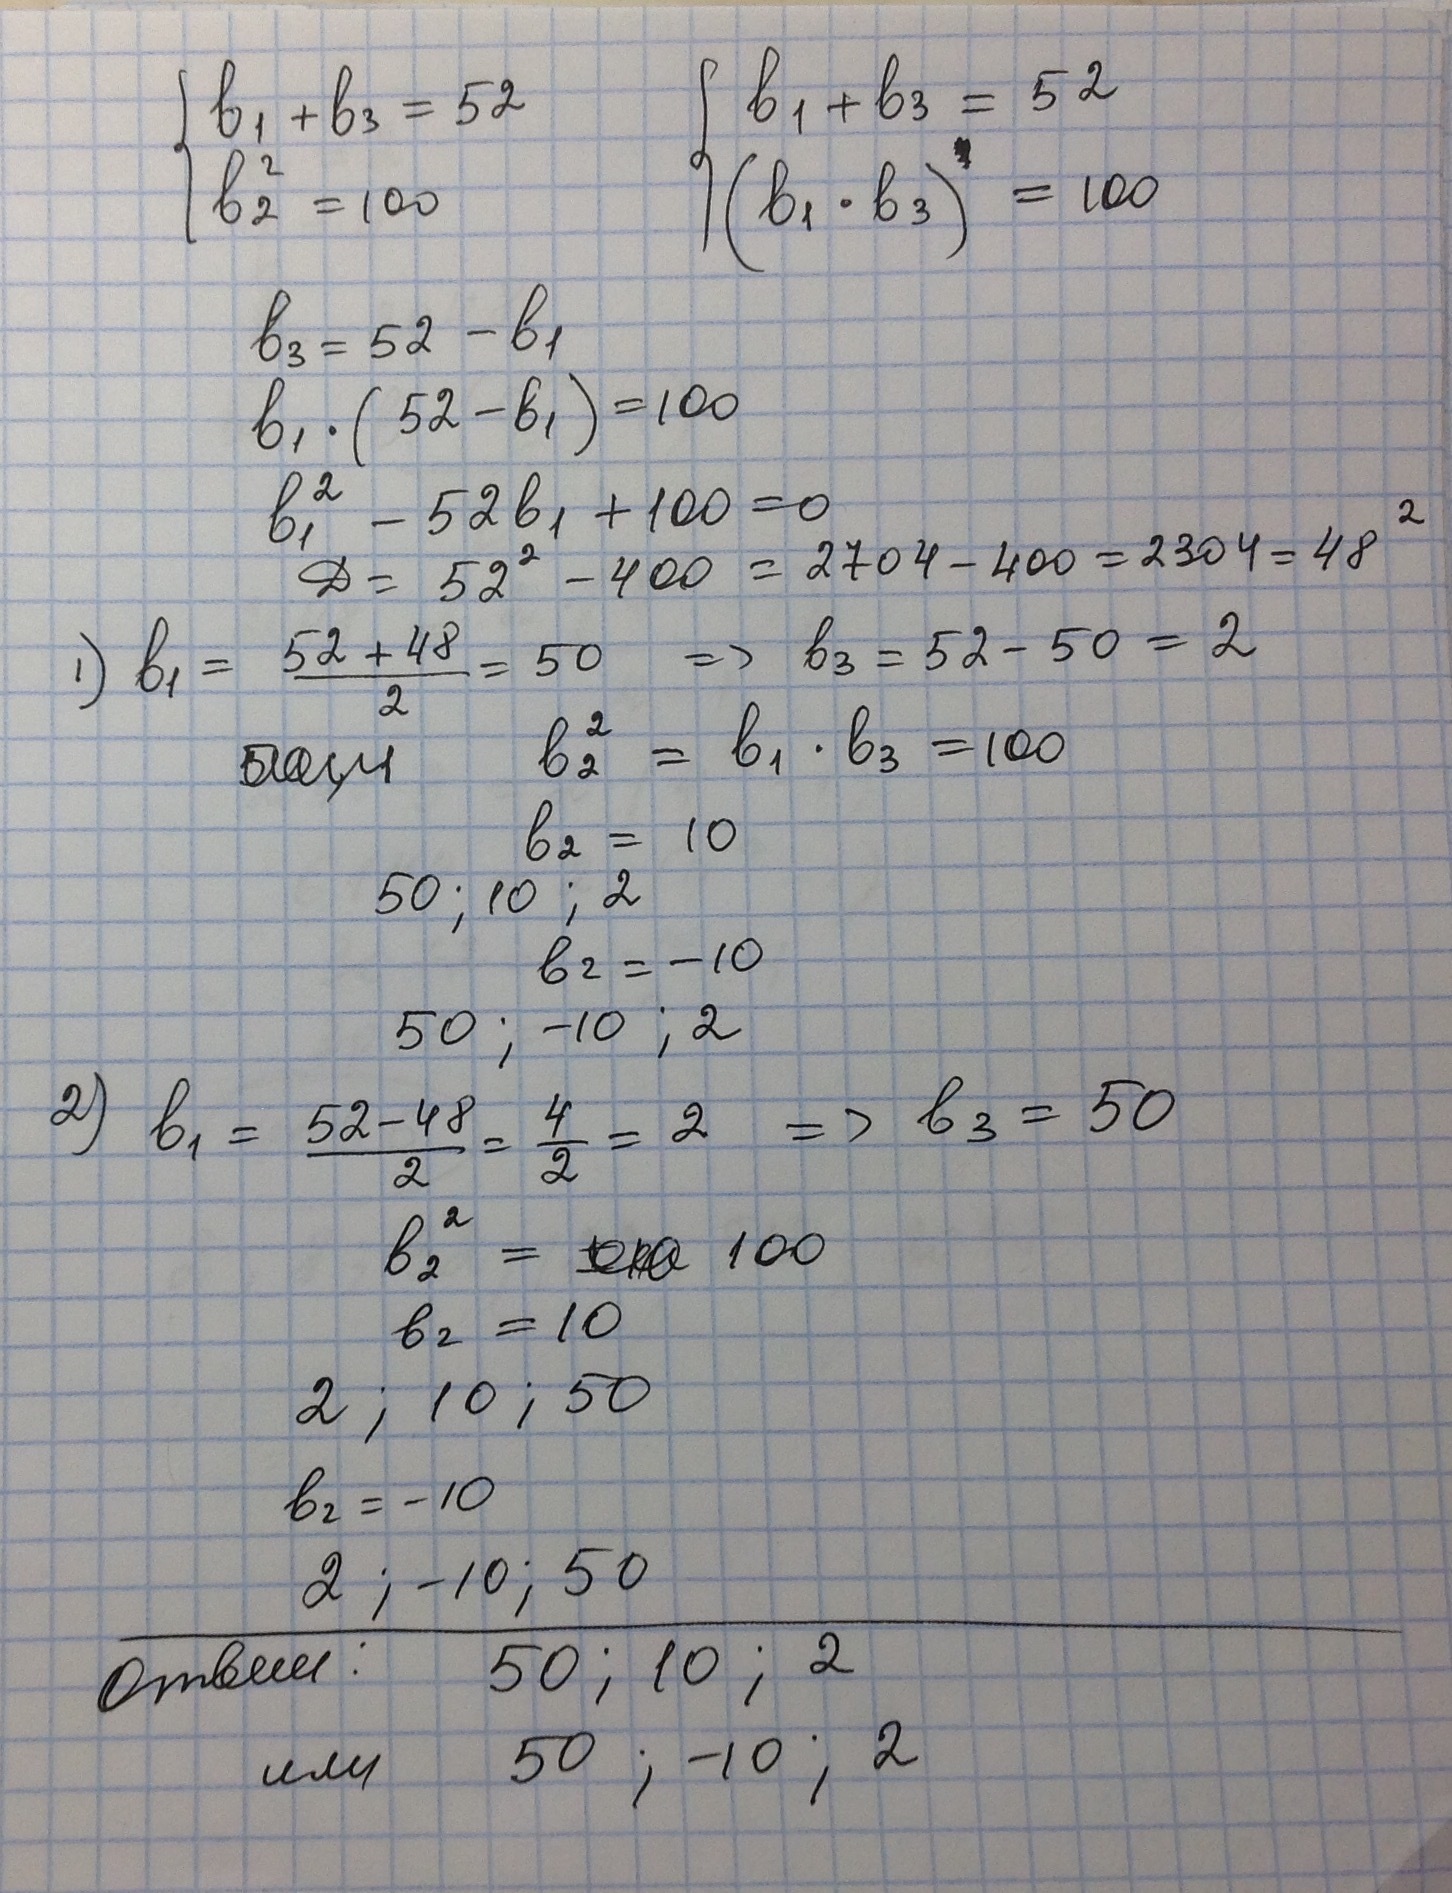 { b₁ + b₃ = 52
b₂² = 100
{ b₁ + b₃ = 52
(b₁ · b₃) = 100
b₃ = 52 - b₁
b₁ · (52 - b₁) = 100
b₁² - 52b₁ + 100 = 0
D = 52² - 400 = 2704 - 400 = 2304 = 48²
1) b₁ = (52 + 48)/2 = 50 => b₃ = 52 - 50 = 2
b₂² = b₁ · b₃ = 100
b₂ = 10
50; 10; 2
b₂ = -10
50; -10; 2
2) b₁ = (52 - 48)/2 = 4/2 = 2 => b₃ = 50
b₂² = 100
b₂ = 10
2; 10; 50
b₂ = -10
2; -10; 50
Ответ: 50; 10; 2
или 50; -10; 2